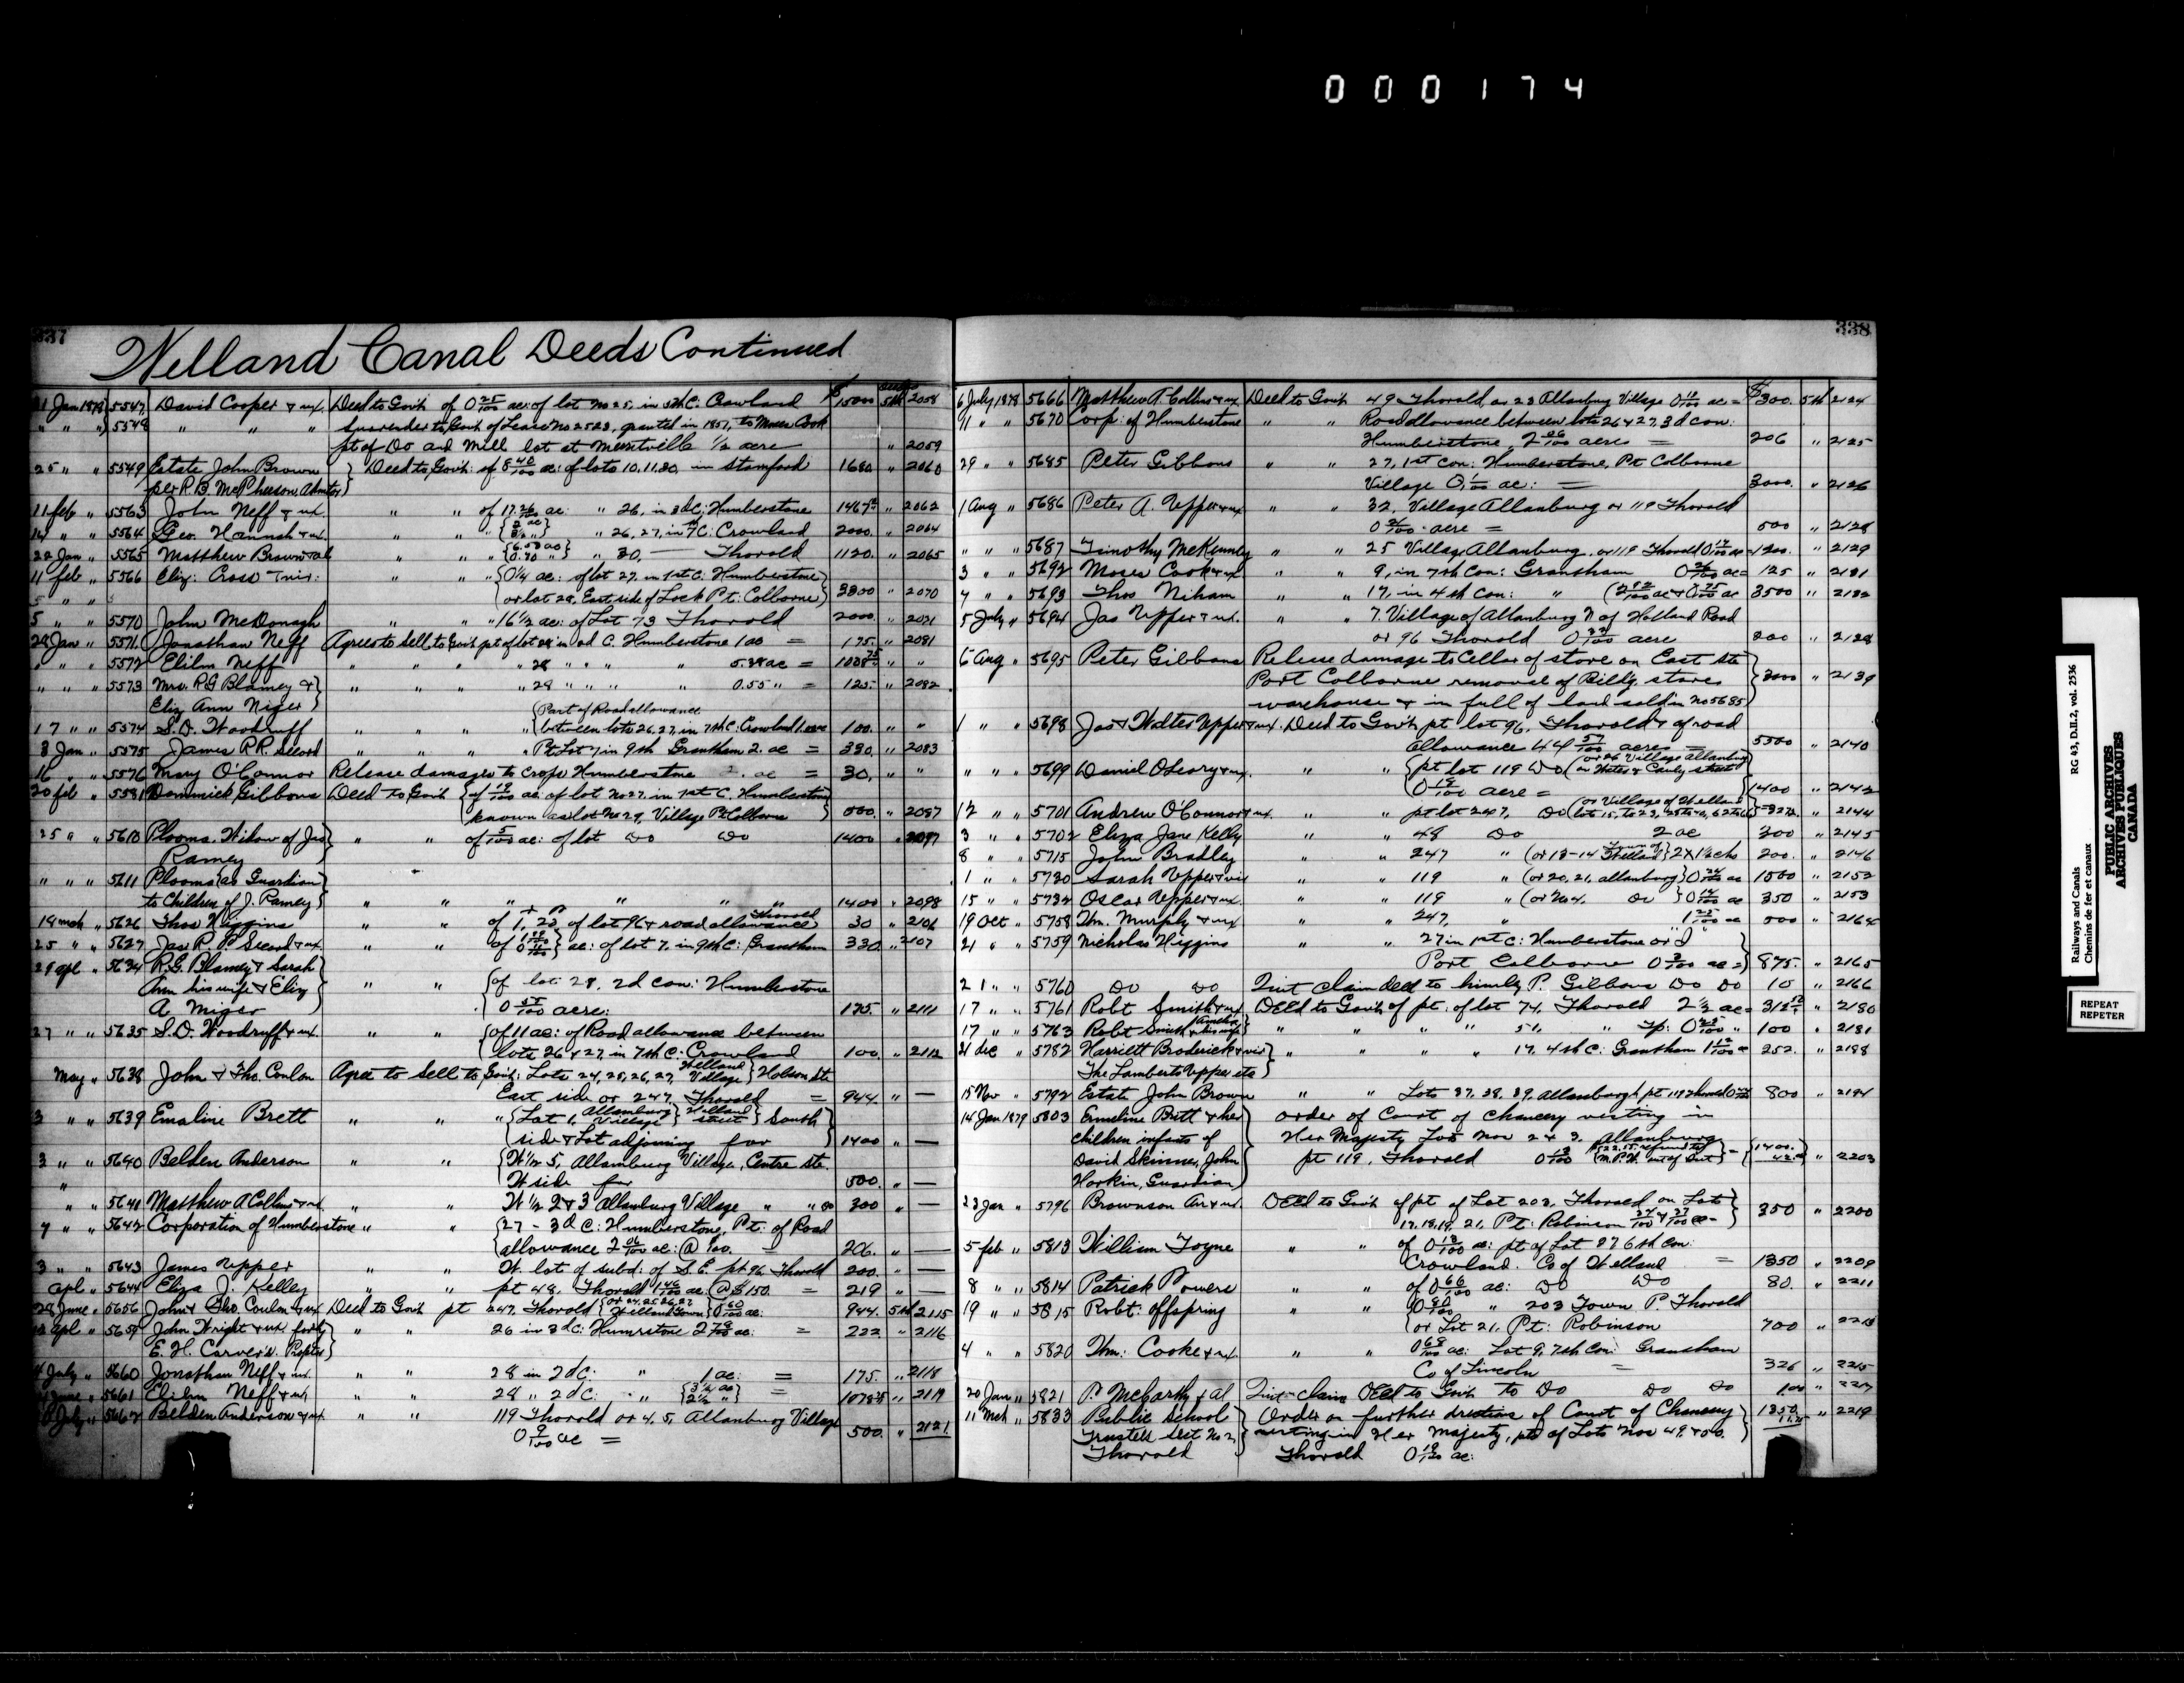 000174
337
Welland Canal Deeds Continued
21 Jan 1878 5547 David Cooper & ux. Deed to Govt. of 0 25/100 ac: of lot no 25, in 5th C. Crowland $ 1500 5th 2058
" " " 5548 " " " Surrender to Govt. of Lease No 2523, granted in 1857, to Moses Cook
pt of Do and Mill lot at Merritville 1/2 acre " 2059
25 " " 5549 Estate John Brown Deed to Govt: of 8 40/100 ac: of lots 10.11.30, in Stamford 1680. " 2060
per R. B. McPherson, Admtor
11 feb " 5563 John Neff & ux. " " of 17 26/100 ac: " 26, in 3d C; Humberstone " 2062
" 5564 Geo. Hannah & ux. " " " " 26, 27, in 7th C: Crowland 2000. " 2064
22 Jan " 5565 Matthew Brown & al " " " 30, — Thorold 1120. " 2065
11 feb " 5566 Eliz: Cross " " " 0 1/4 ac: of lot 27, in 1st C: Humberstone
or lot 28, East side of Lock Pt. Colborne 3300 " 2070
5 " " 5570 John McDonagh " " " 16 1/2 ac: of Lot 73 Thorold 2000. " 2071
29 Jan " 5571 Jonathan Neff Agrees to sell to Govt pt of lot 28 in 2d C. Humberstone 1 ac = 175. " 2081
" " " 5572 Elihu Neff " " " " 28 " " " " 5.38 ac = " "
" " " 5573 Mrs. R G Blamey & " " " " 28 " " " " 0.55 " = 125. " 2082
Eliz Ann Niger
17 " " 5574 S. D. Woodruff " " " " Part of Road allowance
between lots 26, 27, in 7th C: Crowland 100. " "
3 Jan " 5575 James R.R. Secord " " " " Pt Lot 7 in 9th Grantham 2. ac = 330. " 2083
16 " " 5576 Mary O'Connor Release damages to crops Humberstone ac = 30. " "
20 feb " 5581 Dominick Gibbons Deed to Govt of 19/100 ac: of lot No 27, in 1st C. Humberstone
known as lot No 29, Village Pt Colborne 500. " 2087
25 " " 5610 Plooma, Widow of Jas " " of 5/100 ac: of lot Do Do 1400 " 2097
Ramey
" " " 5611 Plooma as Guardian
to Children of J. Ramey " " " " " " 1400 " 2098
18 mch " 5626 Thos Higgins " " of 1, 20, of lot 96 & road allowance Thorold 30 " 2106
25 " " 5627 Jas R. P. Secord & ux " " ac: of lot 7, in 9th C: Grantham 330. " 2107
29 apl " 5634 R. G. Blamey & Sarah
Ann his wife & Eliz " " of lot 28, 2d con: Humberstone
A Niger 0 55/100 acre: 175. " 2111
27 " " 5635 S. D. Woodruff & ux. " " of 11 ac: of Road allowance between
lots 26 & 27, in 7th C: Crowland 100. " 2112
May " 5638 John & Tho. Conlon Agree to sell to Govt: Lots 24, 25, 26, 27, Welland Village Hobson Ste
East side or 247, Thorold = 944. " —
3 " " 5639 Emaline Brett " " " Lot 1, Allanburg Village Holland Street South
side & Lot adjoining for 1400 " —
3 " " 5640 Belden Anderson " " W 1/2 5, Allanburg Village, Centre Ste.
W side for 500. " —
" " 5641 Matthew A Collins & ux " " W 1/2 2 & 3 Allanburg Village " " 300 " —
7 " " 5642 Corporation of Humberstone " " 27 - 3d C: Humberstone, Pt: of Road
allowance 2 06/100 ac: @ 100. = 206. " —
3 " " 5643 James Upper " " W. lot of subd: of S. E. pt 96 Thorold 200. " —
apl " 5644 Eliza J. Kelley " " pt 48, Thorold 1 46/100 ac @ $150. = 219 " —
28 June " 5656 John & Tho. Conlon & ux Deed to Govt pt 247, Thorold or 24.25.26.27 Welland Town 0 60/100 ac: 944. 5th 2115
apl " 5659 John Wright & ux for " " 26 in 3d C: Humrstone 2 78/100 ac: = 222 " 2116
E. H. Carver
4 July " 5660 Jonathan Neff & ux. " " 28 in 2d C: " 1 ac: = 175. " 2118
June " 5661 Elihu Neff & ux, " " 28 " 2d C: " " = " 2119
July " 5662 Belden Anderson & ux " " 119 Thorold or 4. 5, Allanburg Village
0 9/100 ac = 500. " 2121
338
6 July 1878 5666 Matthew A. Collins & ux Deed to Govt 49 Thorold, or 23 Allanburg Village ac = $300. 5th 2124
11 " " 5670 Corp: of Humberstone " " Road allowance between lots 26 & 27, 3d con:
Humberstone, 2 06/100 acres = 206 " 2125
29 " " 5685 Peter Gibbons " " 27, 1st Con: Humberstone, Pt Colborne
Village ac: = 3000. " 2126
1 Aug " 5686 Peter A. Upper & ux " " 32, Village Allanburg or 119 Thorold
acre = 500 " 2128
" " " 5687 Timothy McKenney " " 25 Village Allanburg, or 119 Thorold = 1200. " 2129
3 " " 5692 Moses Cook & ux " " 9, in 7th Con: Grantham 0 26/100 ac = 125 " 2131
7 " " 5693 Thos Nihan " " 17, in 4th Con: " 3500 " 2132
5 July " 5694 Jas Upper & ux. " " 7. Village of Allanburg N of Holland Road
or 96 Thorold acre 200 " 2128
6 Aug " 5695 Peter Gibbons Release damage to Cellar of store on East Ste
Port Colborne removal of Bill'g, stores 3000 " 2139
warehouse & in full of land sold in No 5685
1 " " 5698 Jas & Walter Upper & ux. Deed to Govt pt lot 96, Thorold & of road
allowance 44 57/100 acres = 5500 " 2140
" " " 5699 Daniel O'Leary & ux. " " pt lot 119 Do or 26 Village Allanburg
0 19/100 acre = 1400 " 2142
12 " " 5701 Andrew O'Connor & ux. " " pt lot 247, Do or Village of Welland " 2144
3 " " 5702 Eliza Jane Kelly " " 48 Do 2 ac 300 " 2145
8 " " 5715 John Bradley " " 247 " or 13-14 Town of Welland 200. " 2146
1 " " 5720 Sarah Upper & vir " " 119 " or 20, 21, Allanburg 1500 " 2152
15 " " 5732 Oscar Upper & ux. " " 119 " or No 4. Do ac 350 " 2153
19 Oct " 5758 Wm. Murphy & ux " " 247, " ac 500 " 2164
21 " " 5759 Nicholas Higgins " " 27 in 1st C: Humberstone or
Port Colborne 0 3/100 ac = 875. " 2165
21 " " 5760 Do Do Quit claim deed to him by P. Gibbons Do Do 10 " 2166
17 " " 5761 Robt Smith & ux Deed to Govt of pt. of lot 74, Thorold 2 1/2 ac = " 2180
17 " " 5763 Robt Smith & his wife " " " " 51, " Tp: 100 " 2181
21 dec " 5782 Harriett Broderick & vir " " " " 17, 4th C: Grantham 252. " 2188
The Lamberts Upper etc
15 Nov " 5792 Estate John Brown " " Lots 37.38.39, Allanburgh pt 119 Thorold 800 " 2194
14 Jan 1879 5803 Emeline Brett & her Order of Court of Chancery vesting in
children infants of Her Majesty Lots Nos 2 & 3. Allanburg
David Skinner, John pt 119, Thorold 1400. " 2203
Horkin, Guardian
23 Jan " 5796 Brownson Ari & ux. Deed to Govt of pt of Lot 202, Thorold on Lots
17.18.19, 21, Pt: Robinson 350 " 2200
5 feb " 5813 William Toyne " " of 0 13/100 ac: pt of Lot 27 6th Con:
Crowland. Co of Welland = 1350 " 2209
8 " " 5814 Patrick Powers " " of 0 66/100 ac: Do Do 80. " 2211
19 " " 5815 Robt: Offspring " " " 203 Town P. Thorold
or Lot 21, Pt: Robinson 700 "
4 " " 5820 Wm: Cooke & ux. " " 0 68/100 ac: Lot 9, 7th Con: Grantham
Co of Lincoln = 326 " 2215
20 Jan " 5821 P. McCarthy & al Quit-claim Deed to Govt to Do Do Do 100 " 2217
11 Mch " 5833 Public School Order on further directions of Court of Chancery 1350. " 2219
Trustees Sect No 2, vesting in Her Majesty, pts of Lots Nos 49 & 50.
Thorold Thorold ac:
Railways and Canals RG 43, D.II.2, vol. 2536
Chemins de fer et canaux
PUBLIC ARCHIVES
ARCHIVES PUBLIQUES
CANADA
REPEAT
REPETER